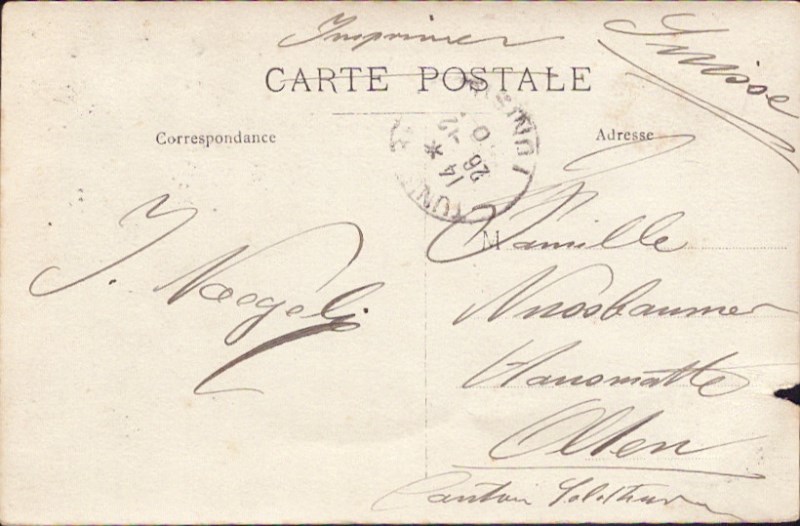 Imprimer
Suisse
CARTE POSTALE
Correspondance
Adresse
TUNIS
14 *
26
J. Naegeli
M
Famille
Nussbaumer
Hausmatte
Olten
Canton Solothurn